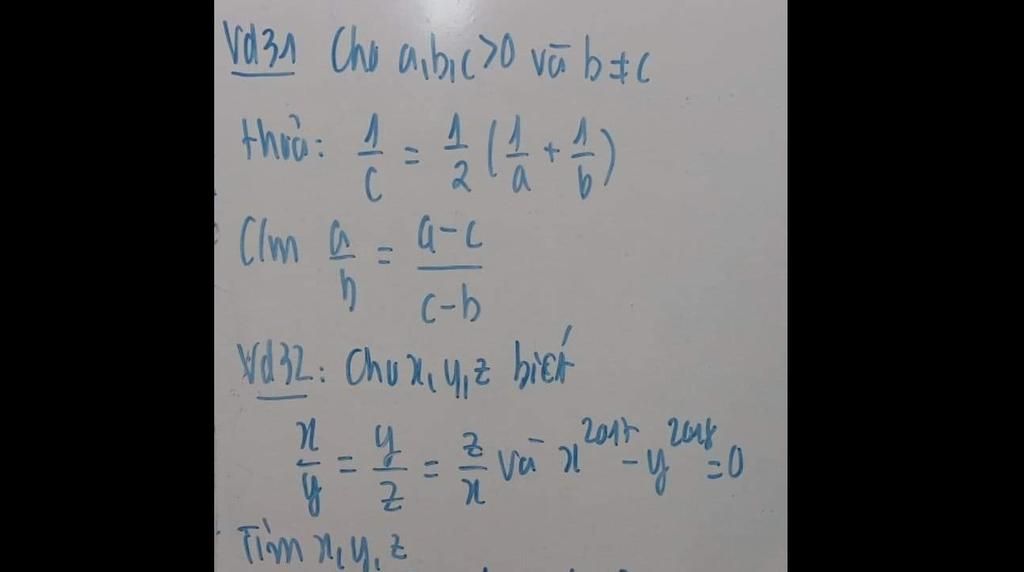 Vd31 Cho a,b,c>0 và b≠c
thoả: 1/c = 1/2 (1/a + 1/b)
C/m a/b = (a-c)/(c-b)
Vd32: Cho x,y,z biết
x/y = y/z = z/x và x^2017 - y^2018 = 0
Tìm x,y,z